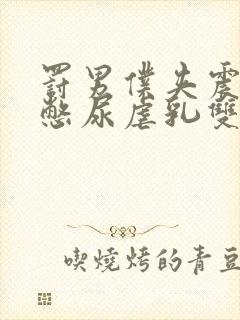 罰男僕失震
憋尿虐乳雙
喫燒烤的青豆